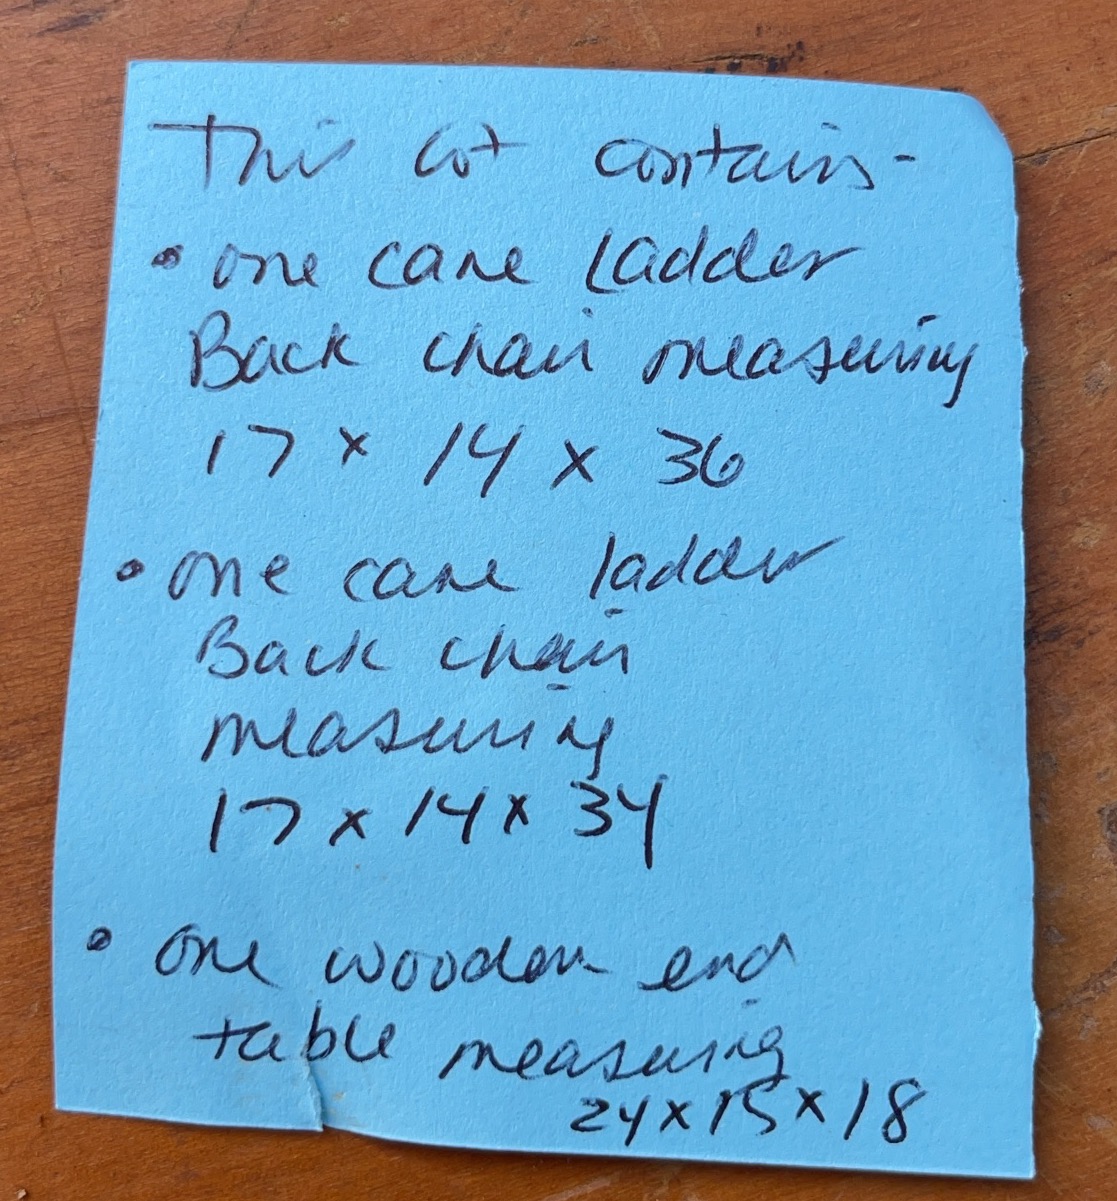 This lot contains-
• one cane Ladder
Back chair measuring
17 x 14 x 36
• one cane ladder
Back chair
measuring
17 x 14 x 34
• one wooden end
table measuring
24 x 15 x 18